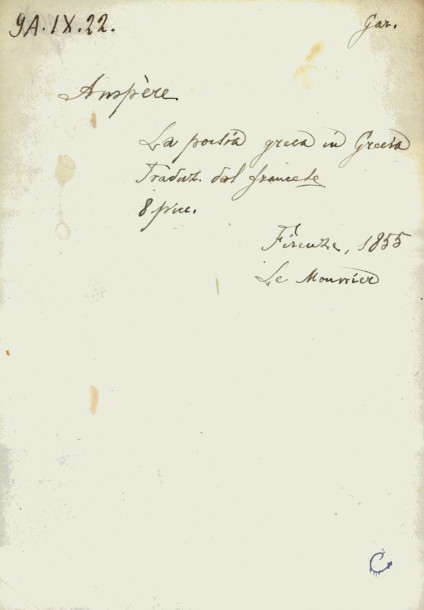 9A.IX.22.
Gar.
Ampère
La poesia greca in Grecia
Traduz. dal francese
8 picc.
Firenze, 1855
Le Monnier
C